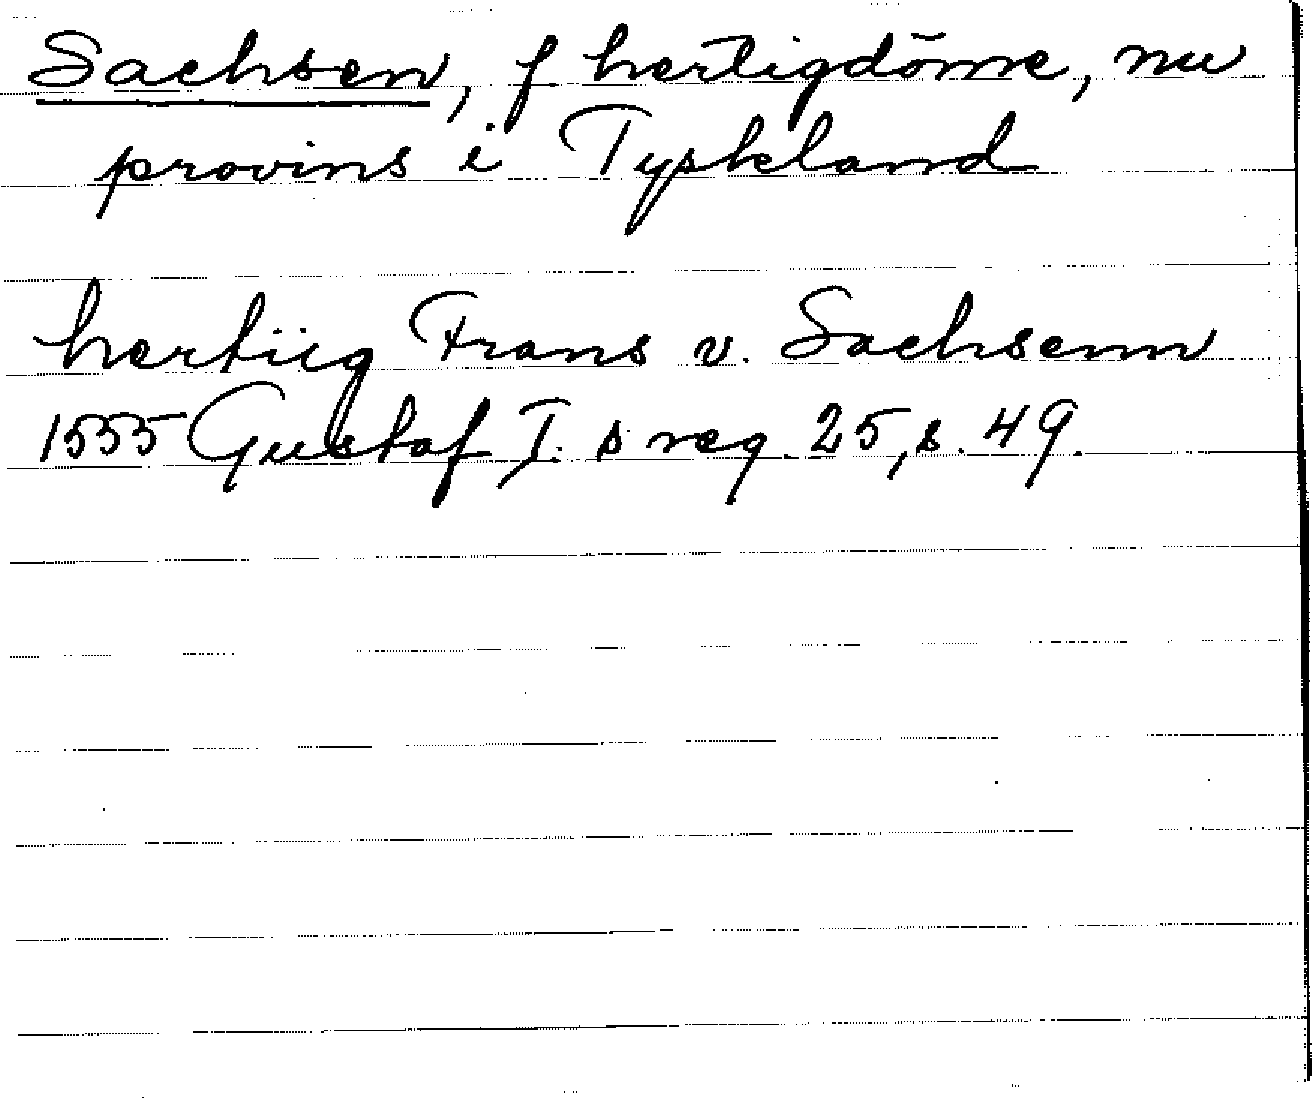 Sachsen, f hertigdöme, nu
provins i Tyskland
hertiig Frans v. Sachsenn
1555 Gustaf I. s reg. 25, s. 49.